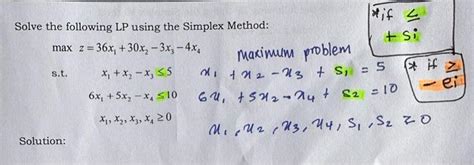 Solve the following LP using the Simplex Method:
max z = 36x₁ + 30x₂ − 3x₃ − 4x₄
s.t. x₁ + x₂ − x₃ ≤ 5
6x₁ + 5x₂ − x₄ ≤ 10
x₁, x₂, x₃, x₄ ≥ 0
Solution:
maximum problem
x₁ + x₂ − x₃ + S₁ = 5
6x₁ + 5x₂ − x₄ + S₂ = 10
x₁, x₂, x₃, x₄, S₁, S₂ ≥ 0
*if ≤
+ Si
* if ≥
− ei